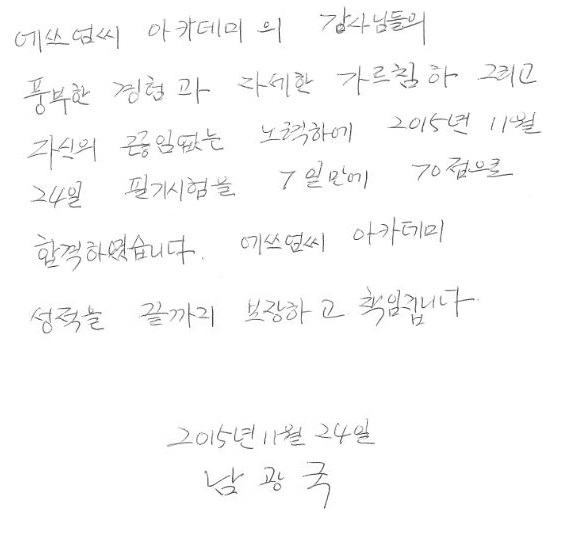 에쓰엠씨 아카데미의 강사님들의
풍부한 경험과 자세한 가르침하 그리고
자신의 끊임없는 노력하에 2015년 11월
24일 필기시험을 7일만에 70점으로
합격하였습니다. 에쓰엠씨 아카데미
성적을 끝까지 보장하고 책임집니다.
2015년 11월 24일
남광국